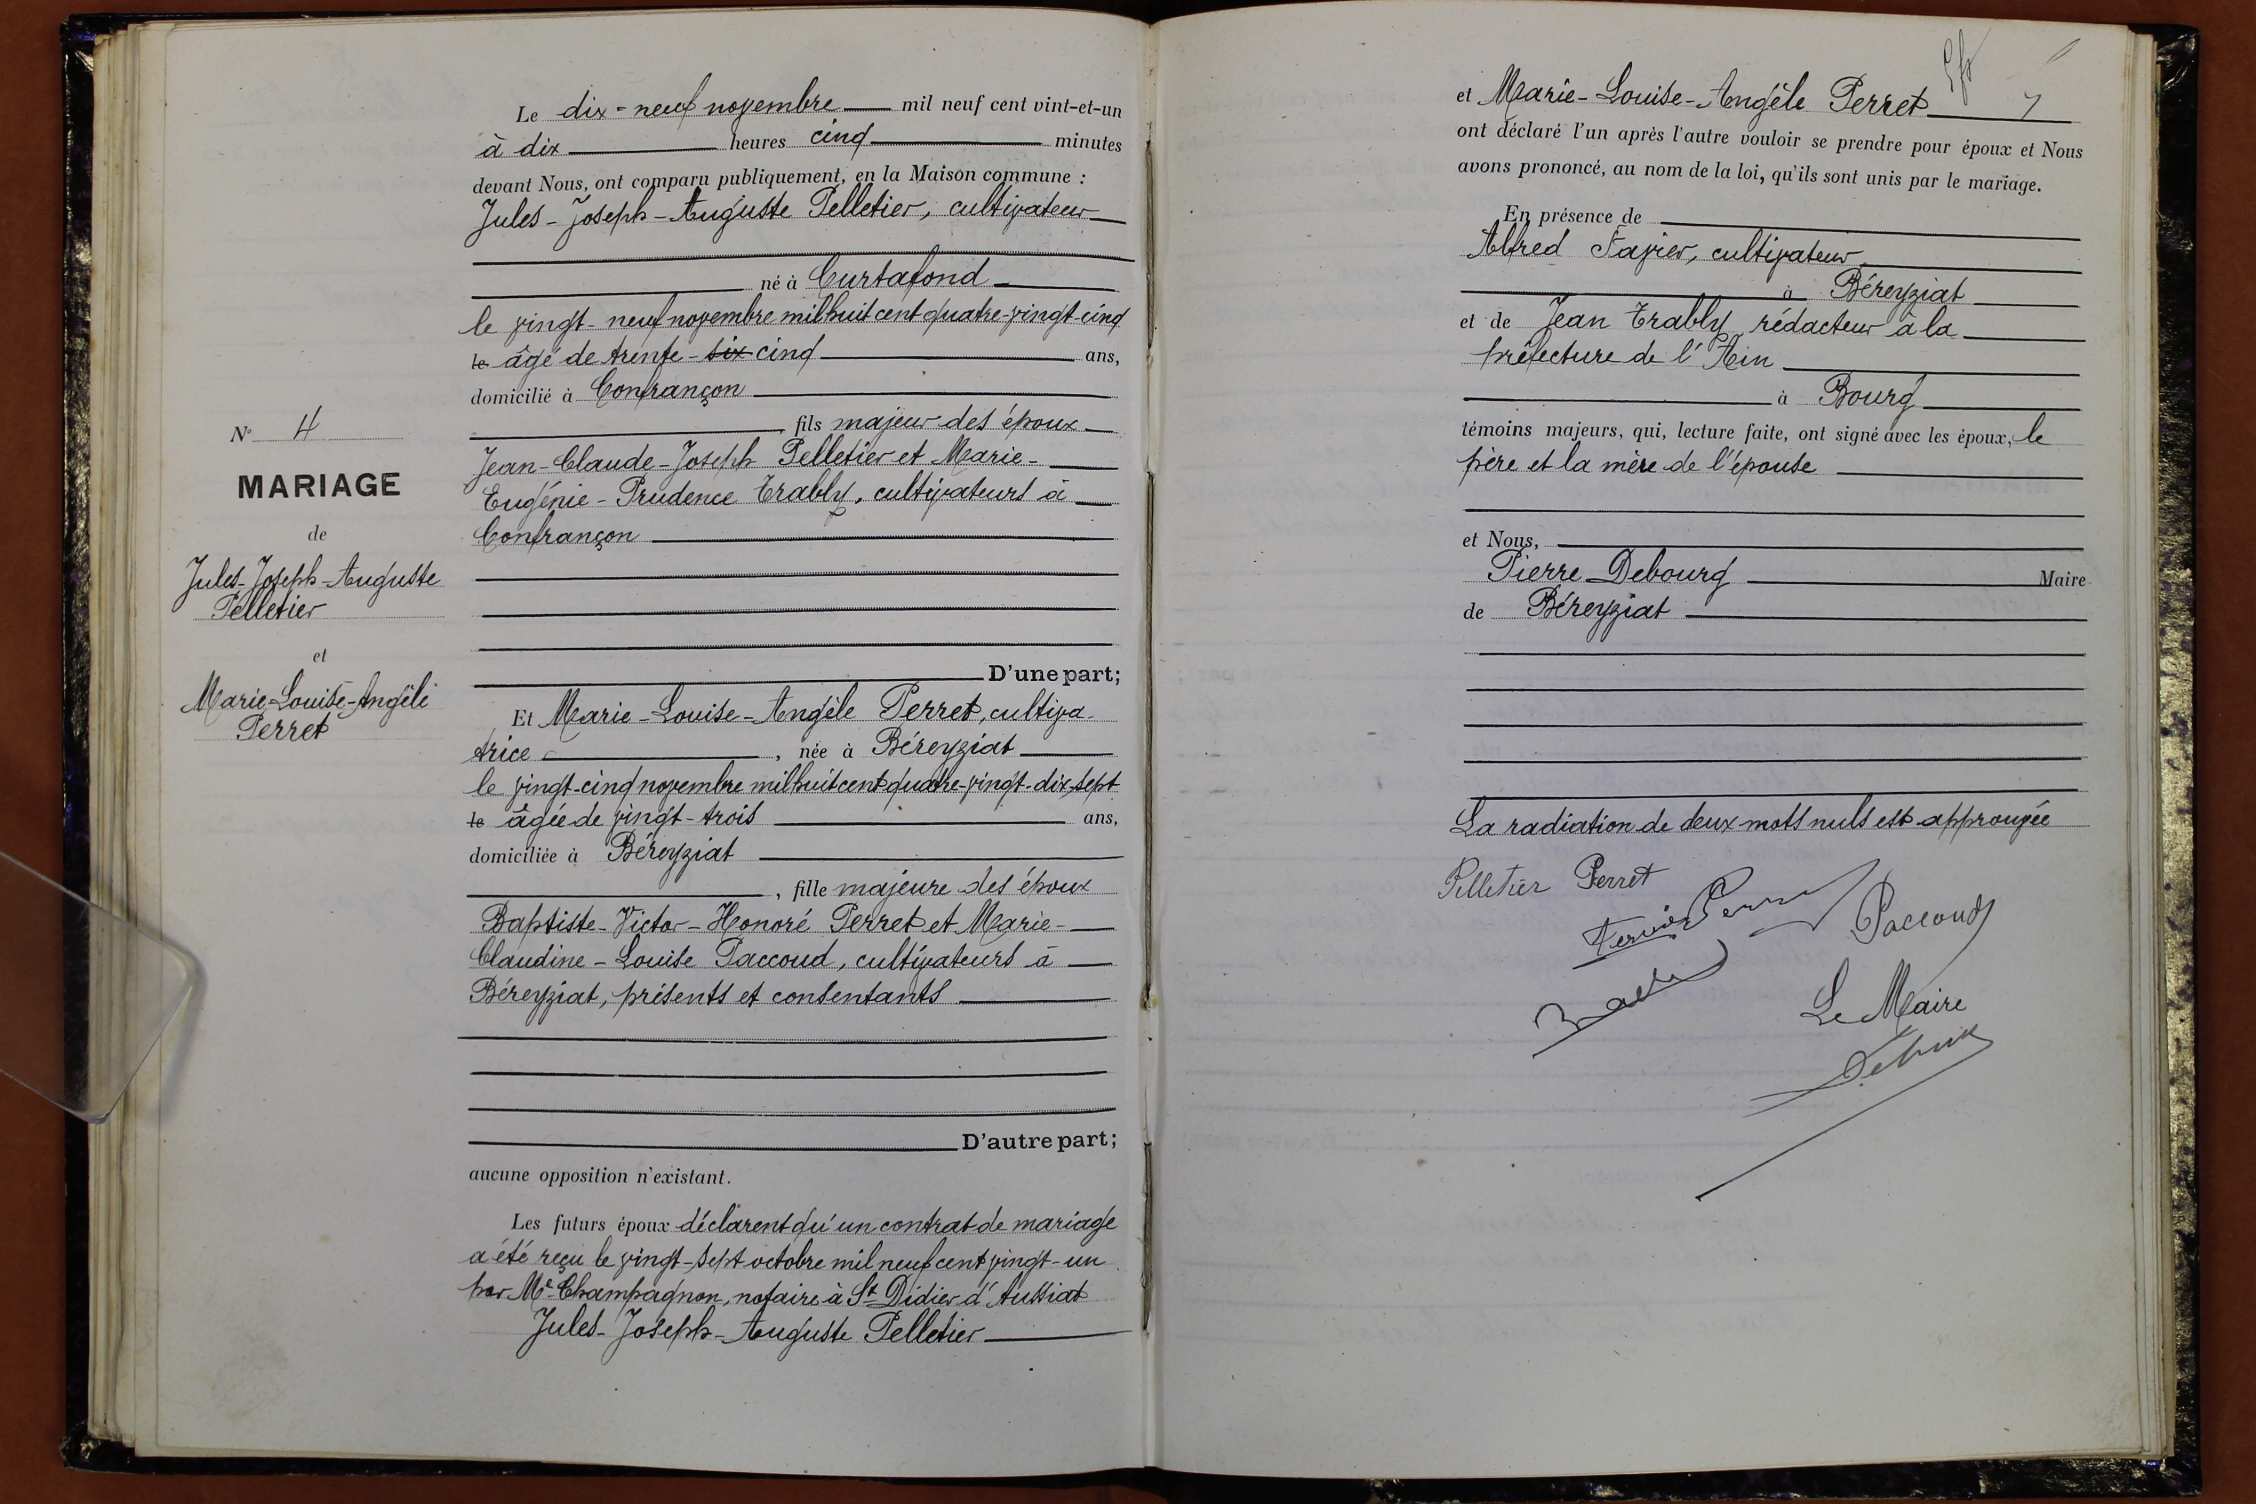 N° 4
MARIAGE
de
Jules-Joseph-Auguste
Pelletier
et
Marie-Louise-Angèle
Perret
Le dix-neuf novembre mil neuf cent vint-et-un
à dix heures cinq minutes
devant Nous, ont comparu publiquement, en la Maison commune :
Jules-Joseph-Auguste Pelletier, cultivateur
né à Curtafond
le vingt-neuf novembre mil huit cent quatre-vingt-cinq
le âgé de trente-six cinq ans,
domicilié à Confrançon
, fils majeur des époux
Jean-Claude-Joseph Pelletier et Marie-
Eugénie-Prudence Trably, cultivateurs à
Confrançon
D'une part;
Et Marie-Louise-Angèle Perret, cultiva-
trice, née à Béreyziat
le vingt-cinq novembre mil huit cent quatre-vingt-dix-sept
le âgée de vingt-trois ans,
domiciliée à Béreyziat
, fille majeure des époux
Baptiste-Victor-Honoré Perret et Marie-
Claudine-Louise Paccoud, cultivateurs à
Béreyziat, présents et consentants
D'autre part;
aucune opposition n'existant.
Les futurs époux déclarent qu'un contrat de mariage
a été reçu le vingt-sept octobre mil neuf cent vingt-un
par Me Champagnon, notaire à St Didier d'Aussiat
Jules-Joseph-Auguste Pelletier
7
et Marie-Louise-Angèle Perret
ont déclaré l'un après l'autre vouloir se prendre pour époux et Nous
avons prononcé, au nom de la loi, qu'ils sont unis par le mariage.
En présence de
Alfred Favier, cultivateur
à Béreyziat
et de Jean Trably rédacteur à la
préfecture de l'Ain
à Bourg
témoins majeurs, qui, lecture faite, ont signé avec les époux, le
père et la mère de l'épouse
et Nous,
Pierre Debourg Maire
de Béreyziat
La radiation de deux mots nuls est approuvée
Pelletier Perret
Perret
Paccoud
Le Maire